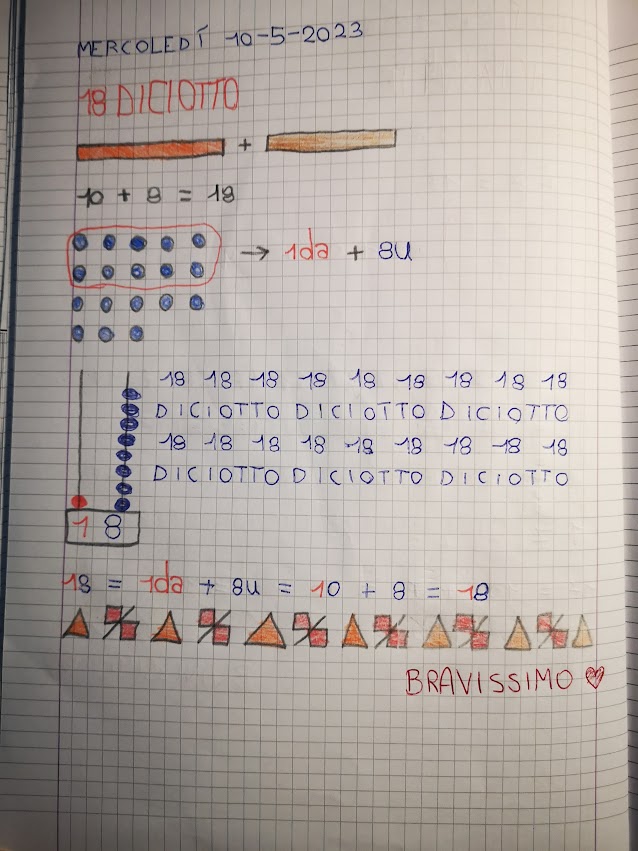 MERCOLEDÍ 10-5-2023
18 DICIOTTO
+
10 + 8 = 18
→ 1da + 8U
18 18 18 18 18 18 18 18 18
DICIOTTO DICIOTTO DICIOTTO
18 18 18 18 18 18 18 18 18
DICIOTTO DICIOTTO DICIOTTO
1 8
18 = 1da + 8U = 10 + 8 = 18
BRAVISSIMO ♥